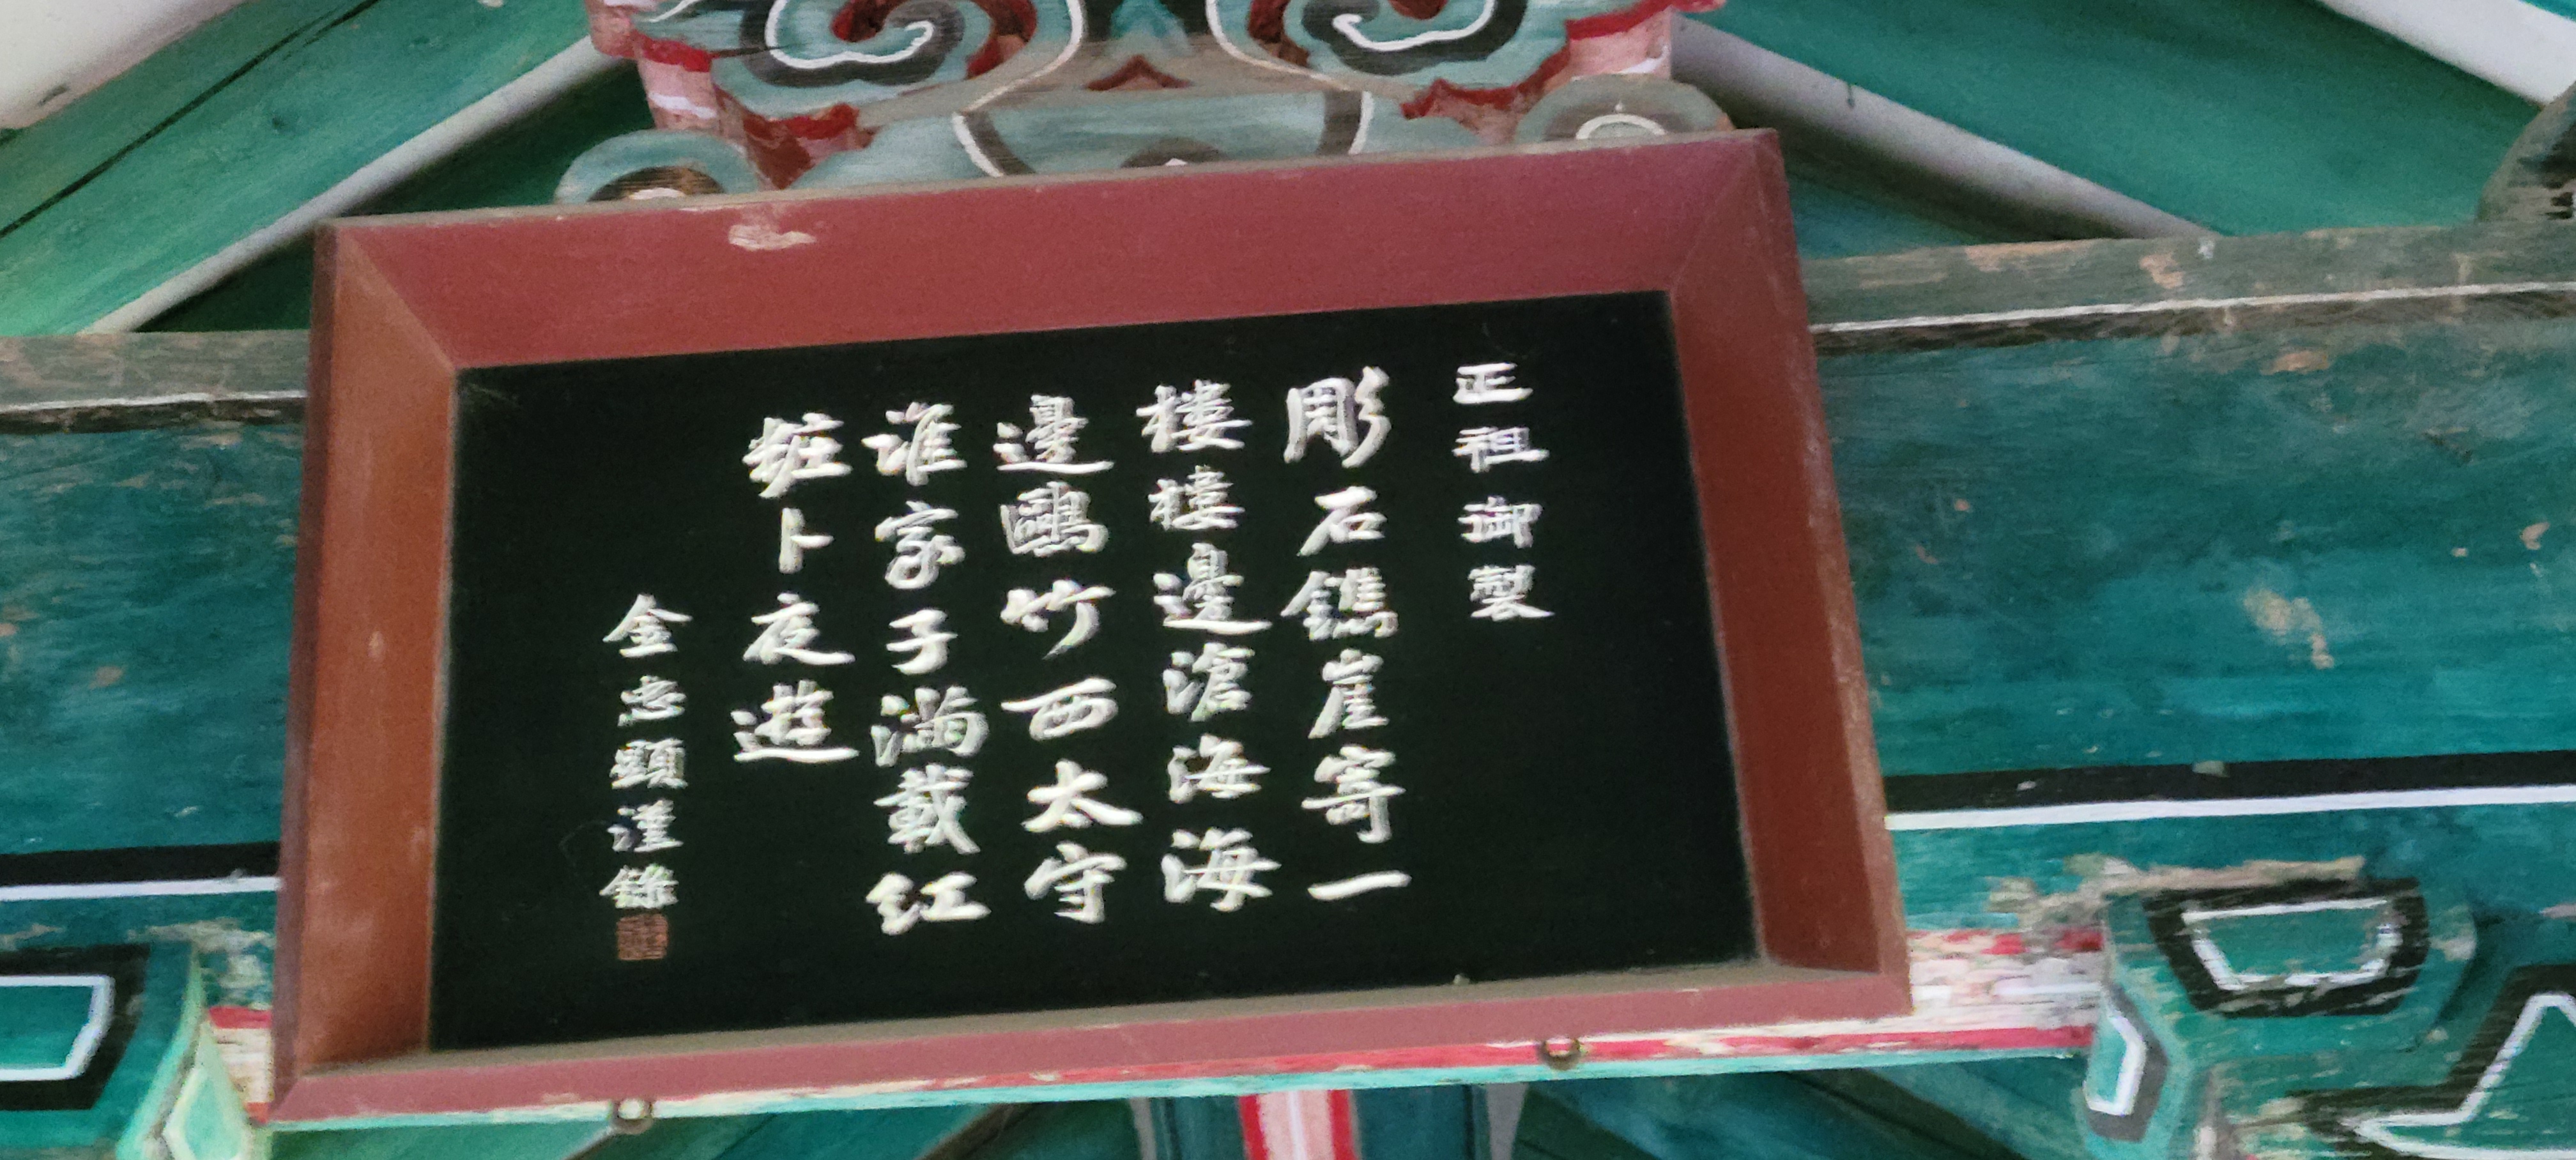 正祖御製
彫石鐫崖寄一
樓樓邊滄海海
邊鷗竹西太守
誰家子滿載紅
粧卜夜遊
金忠顯謹錄